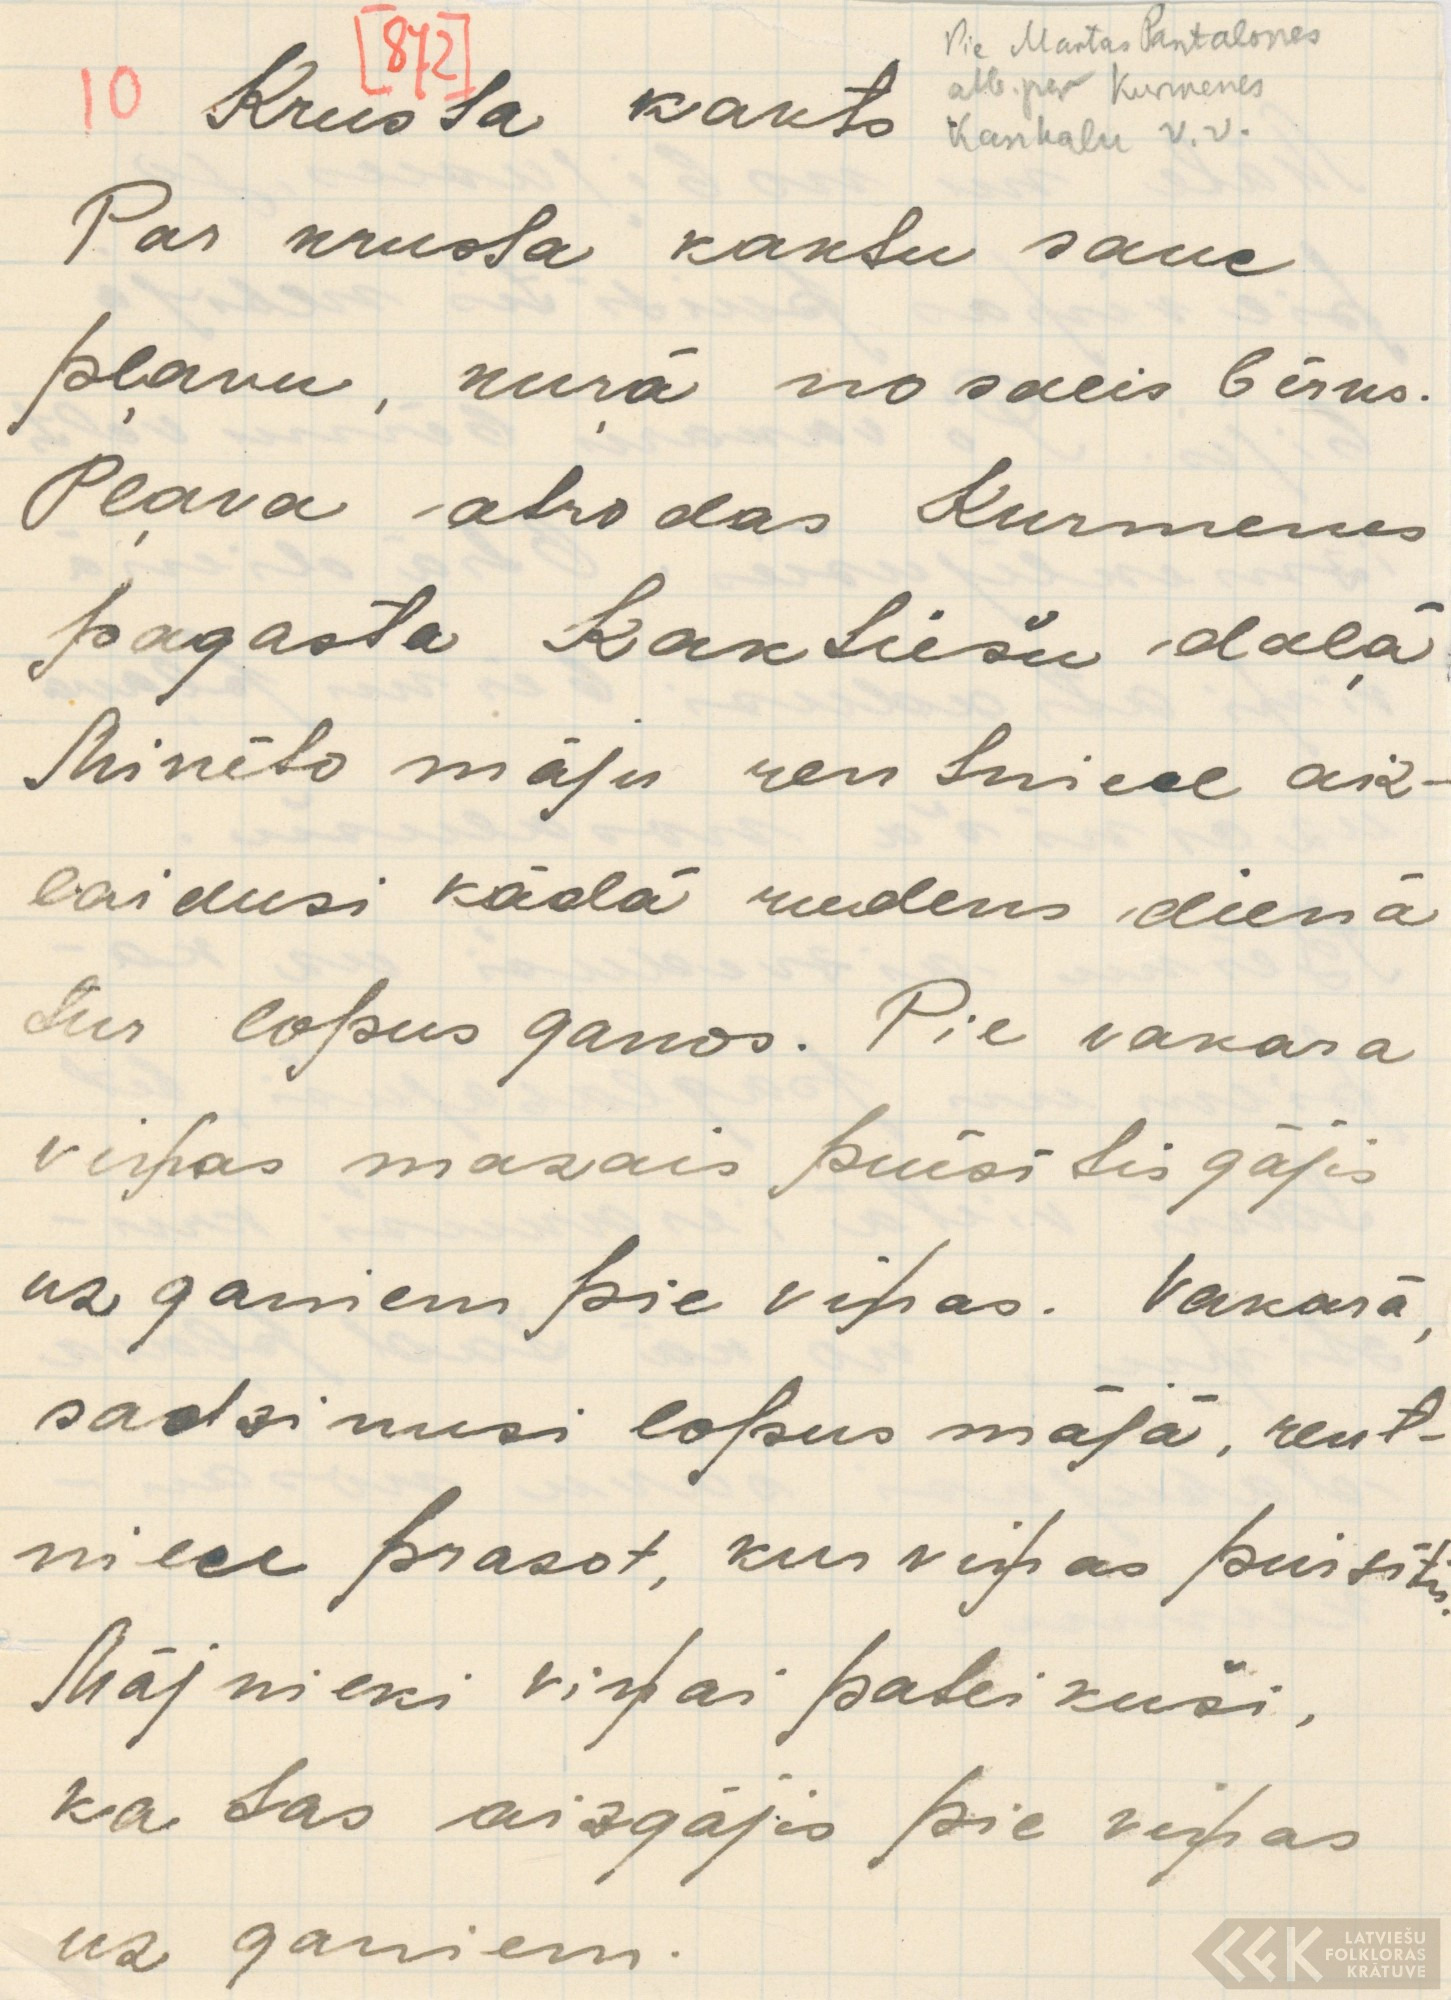 [872]
10 Krusta kakts
Pie Martas Pantalones
Kurmenes
v.v.
Par krusta kaktu sauc
pļavu, kuŗā nosalis bērns.
Pļava atrodas Kurmenes
pagasta Kaktiešu daļā.
Minēto māju rentniece aiz-
laidusi kādā rudens dienā
tur lopus ganos. Pie vakara
viņas mazais puisītis gājis
uz ganiem pie viņas. Vakarā,
sadzinusi lopus mājā, rent-
niece prasot, kur viņas puisītis.
Mājnieki viņai pateikuši,
ka tas aizgājis pie viņas
uz ganiem.
LATVIEŠU
FOLKLORAS
KRĀTUVE